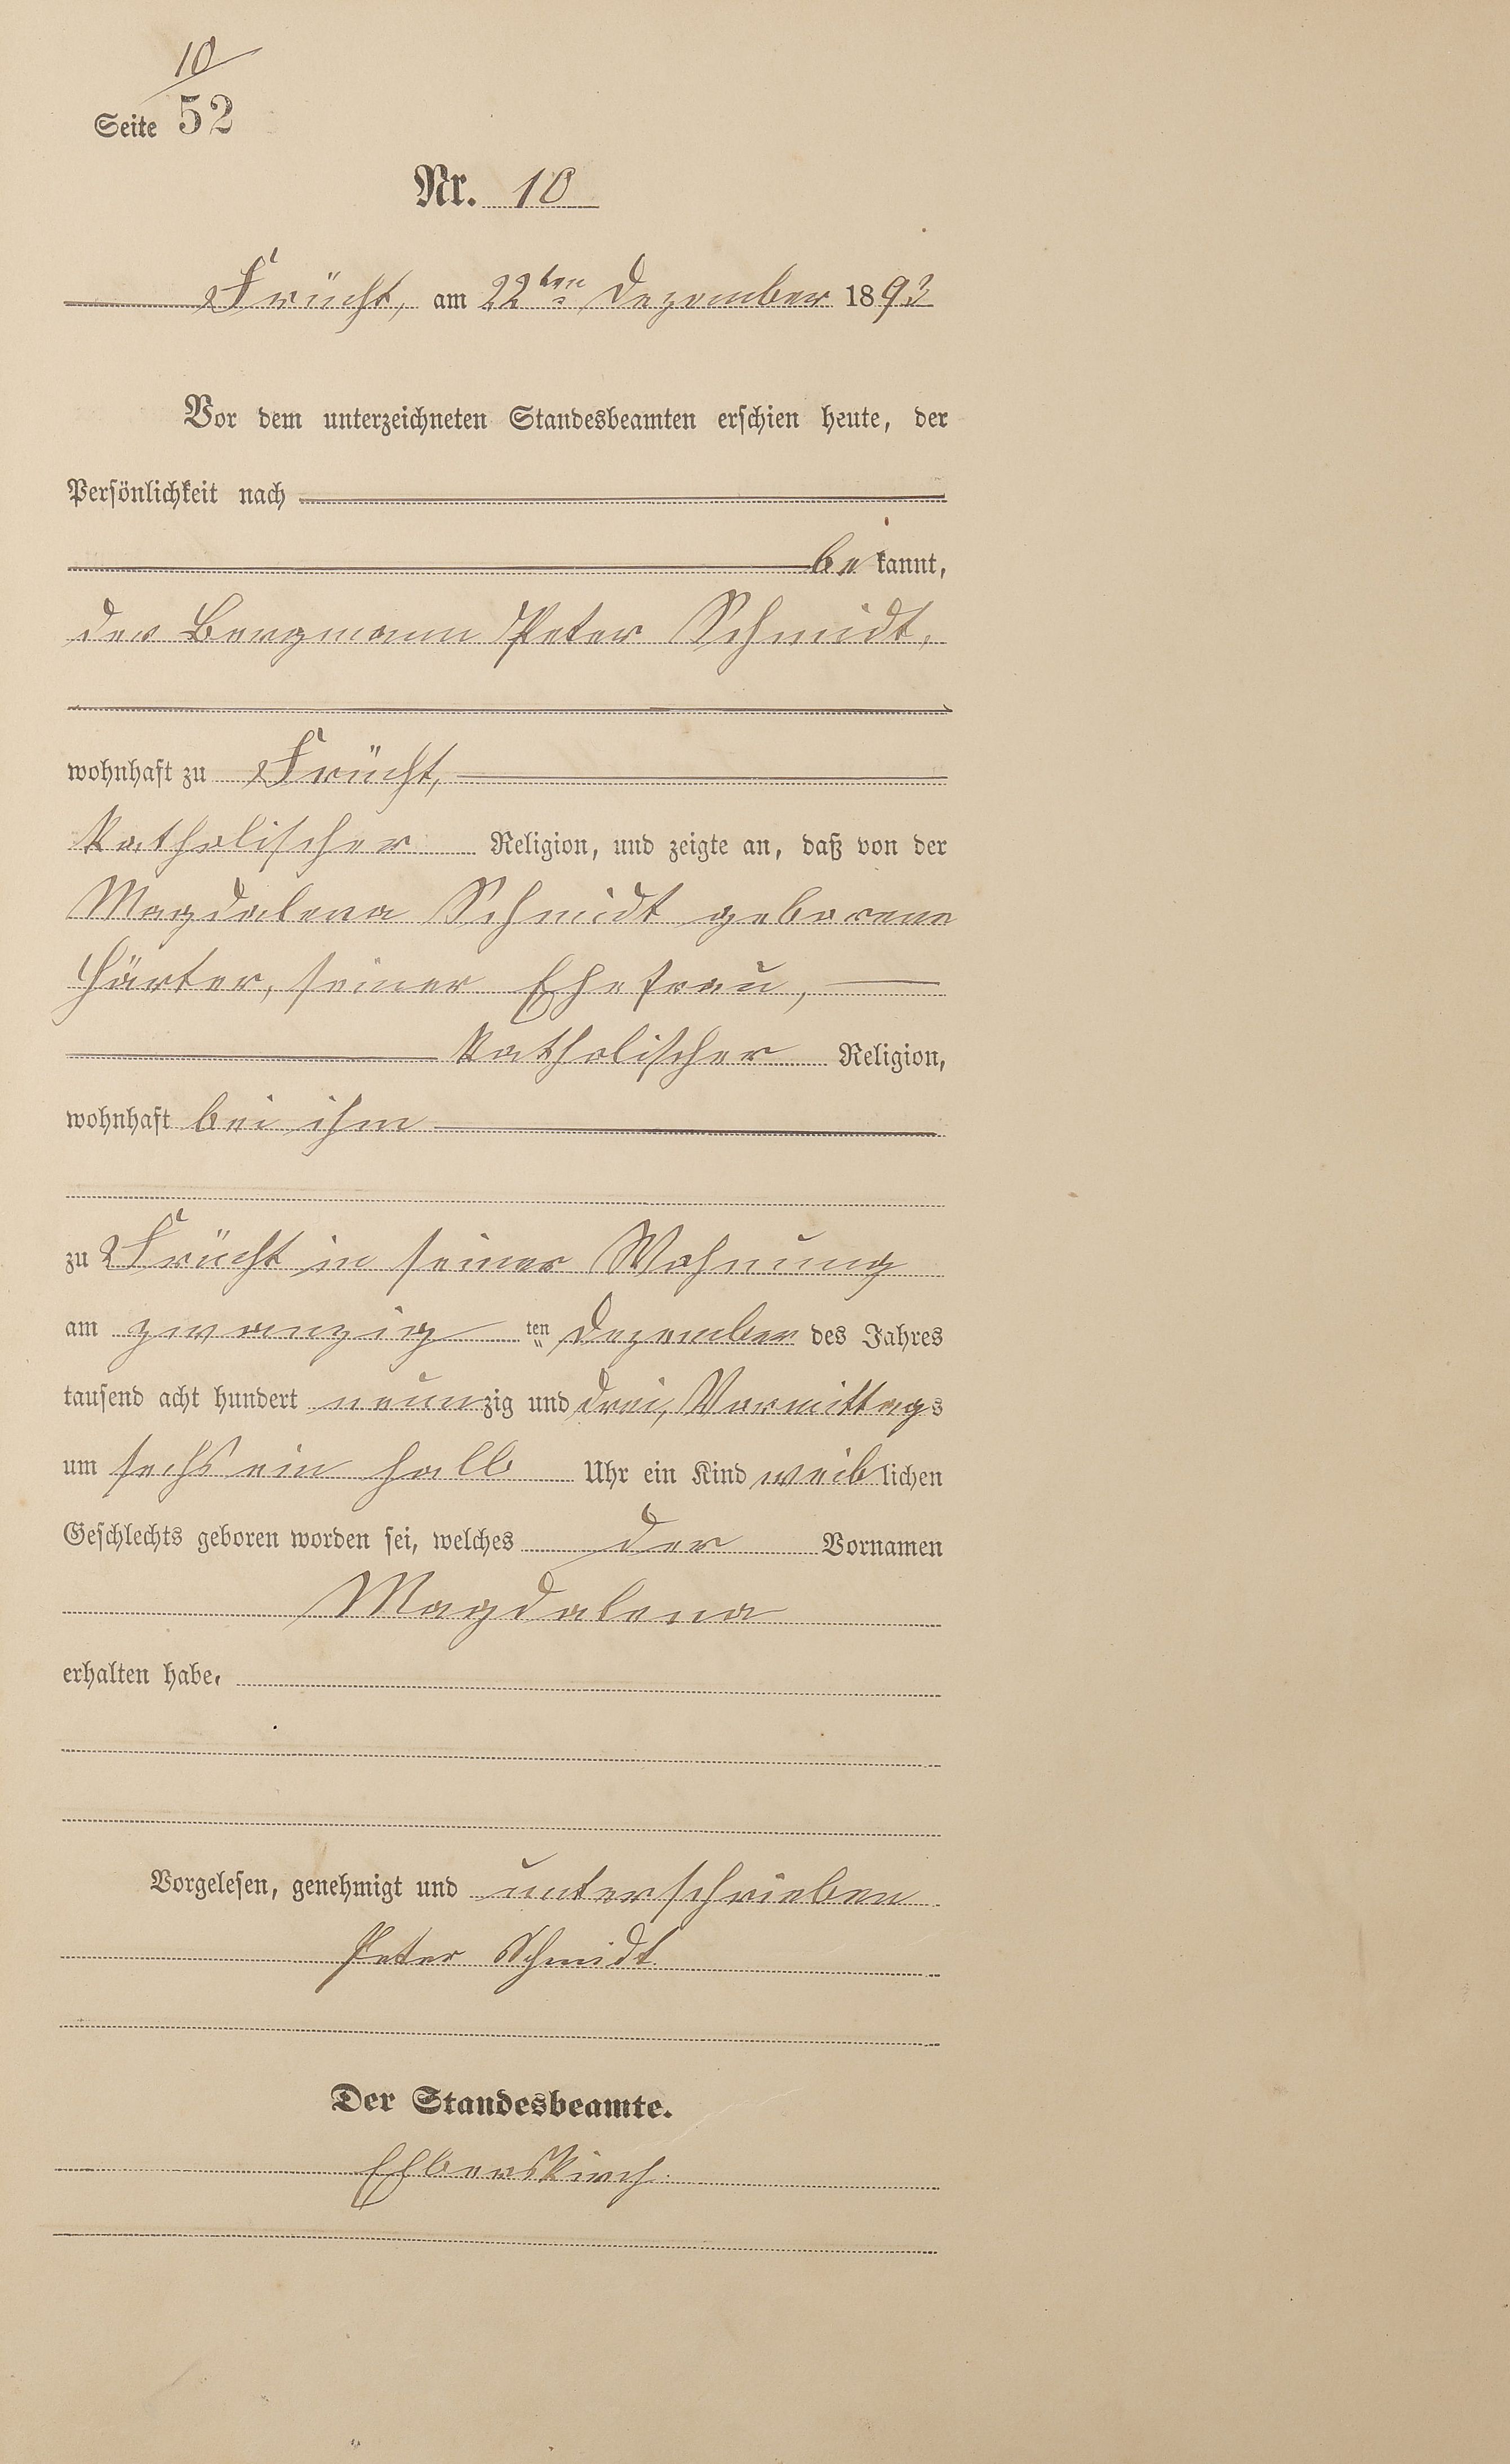 10
Seite 52
Nr. 10
Frücht, am 22ten Dezember 1893
Vor dem unterzeichneten Standesbeamten erschien heute, der
Persönlichkeit nach
be kannt,
der Bergmann Peter Schmidt,
wohnhaft zu Frücht,
katholischer Religion, und zeigte an, daß von der
Magdalena Schmidt geborene
Härter, seiner Ehefrau,
katholischer Religion,
wohnhaft bei ihm
zu Frücht in seiner Wohnung
am zwanzig ten Dezember des Jahres
tausend acht hundert neunzig und drei, Vormittags
um sechs ein halb Uhr ein Kind weiblichen
Geschlechts geboren worden sei, welches der Vornamen
Magdalena
erhalten habe.
Vorgelesen, genehmigt und unterschrieben
Peter Schmidt.
Der Standesbeamte.